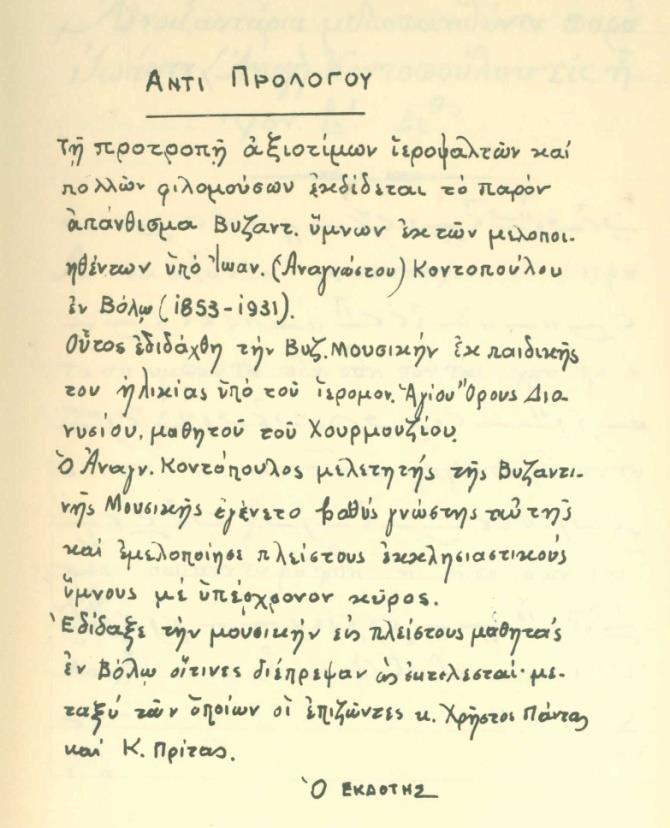 ΑΝΤΙ ΠΡΟΛΟΓΟΥ
Τῇ προτροπῇ ἀξιοτίμων ἱεροψαλτῶν καί
πολλῶν φιλομούσων ἐκδίδεται το παρόν
ἀπάνθισμα Βυζαντ. ὕμνων ἐκ τῶν μελοποι-
ηθέντων ὑπό Ἰωαν. (Ἀναγνώστου) Κοντοπούλου
ἐν Βόλῳ (1853-1931).
Οὗτος ἐδιδάχθη τήν Βυζ. Μουσικήν ἐκ παιδικῆς
του ἡλικίας ὑπό τοῦ ἱερομον. Ἁγίου Ὄρους Διο-
νυσίου, μαθητοῦ τοῦ Χουρμουζίου.
Ὁ Ἀναγν. Κοντόπουλος μελετητής τῆς Βυζαντι-
νῆς Μουσικῆς ἐγένετο βαθύς γνώστης αὐτῆς
καί ἐμελοποίησε πλείστους ἐκκλησιαστικούς
ὕμνους μέ ὑπέρχρονον κῦρος.
Ἐδίδαξε τήν μουσικήν εἰς πλείστους μαθητάς
ἐν Βόλῳ οἵτινες διέπρεψαν ὡς ἐκτελεσταί· με-
ταξύ τῶν ὁποίων οἱ ἐπιζῶντες κ. Χρῆστος Πάντας
καί Κ. Πρίτας.
Ὁ ΕΚΔΟΤΗΣ